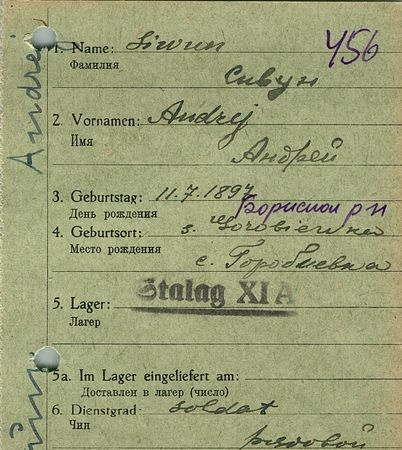 456
1. Name: Siwun
Фамилия
Сивун
2. Vornamen: Andrej
Имя
Андрей
3. Geburtstag: 11.7.1897
День рождения
4. Geburtsort: s. Gorobiewka
Место рождения
с. Горобиевка
Stalag XI A
5. Lager:
Лагер
5a. Im Lager eingeliefert am:
Доставлен в лагер (число)
6. Dienstgrad: soldat
Чин
рядовой
Andrej